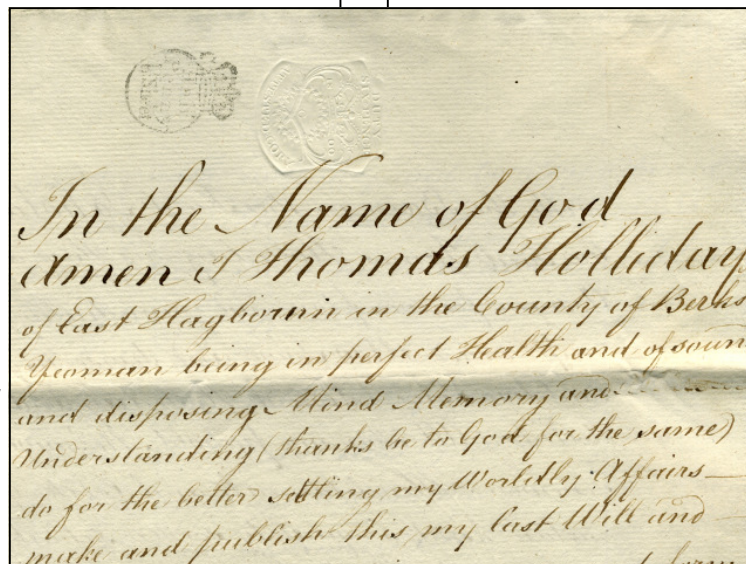 In the Name of God
Amen I Thomas Holliday
of East Hagbourn in the County of Berks
Yeoman being in perfect Health and of soun
and disposing Mind Memory and
Understanding (thanks be to God for the same)
do for the better settling my Worldly Affairs
make and publish this my last Will and
form